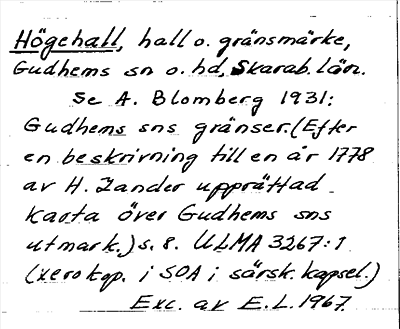 Högehall, hall o. gränsmärke,
Gudhems sn o. hd, Skarab. län.
Se A. Blomberg 1931:
Gudhems sns gränser. (Efter
en beskrivning till en år 1778
av H. Zander upprättad
karta över Gudhems sns
utmark.) s. 8. ULMA 3267:1
(xerokop. i SOA i särsk. kapsel.)
Exc. av E.L. 1967.